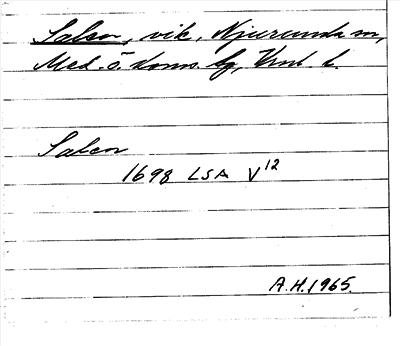 Salen, vik, Njurunda sn,
Med. ö. doms. tg, Vnl. l.
Salen
1698 LSA V12
A.H. 1965.